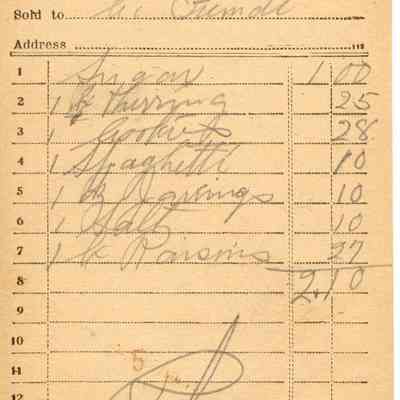 Sold to
Address
1 Sugar 1 00
2 1 Herring 25
3 1 Cookies 28
4 1 Spaghetti 10
5 1 10
6 1 Salt 10
7 1 Raisins 27
8 2.10
9
10
11 5
12